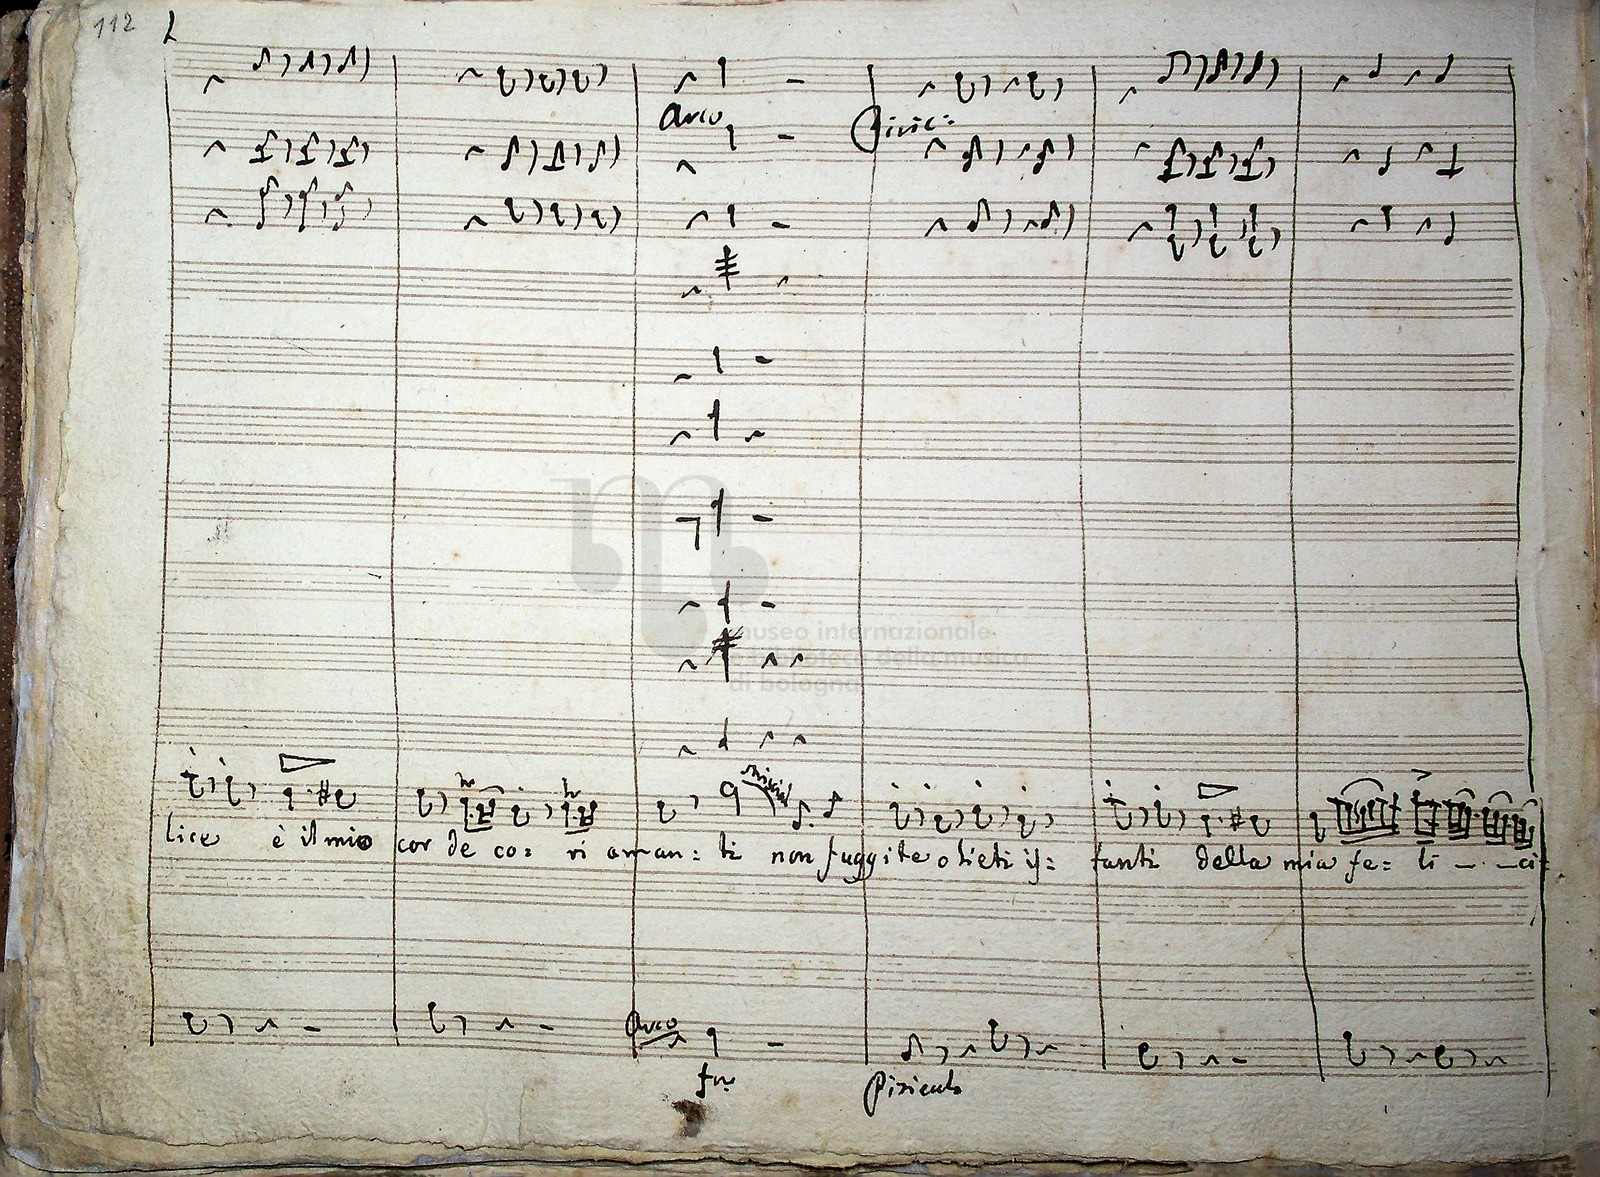 112
Arco
museo internazionale
e biblioteca della musica
di bologna
lice è il mio cor de co= ri aman= ti non fuggite o lieti is= tanti della mia fe= li - - - ci=
Arco
for.
Pizicato